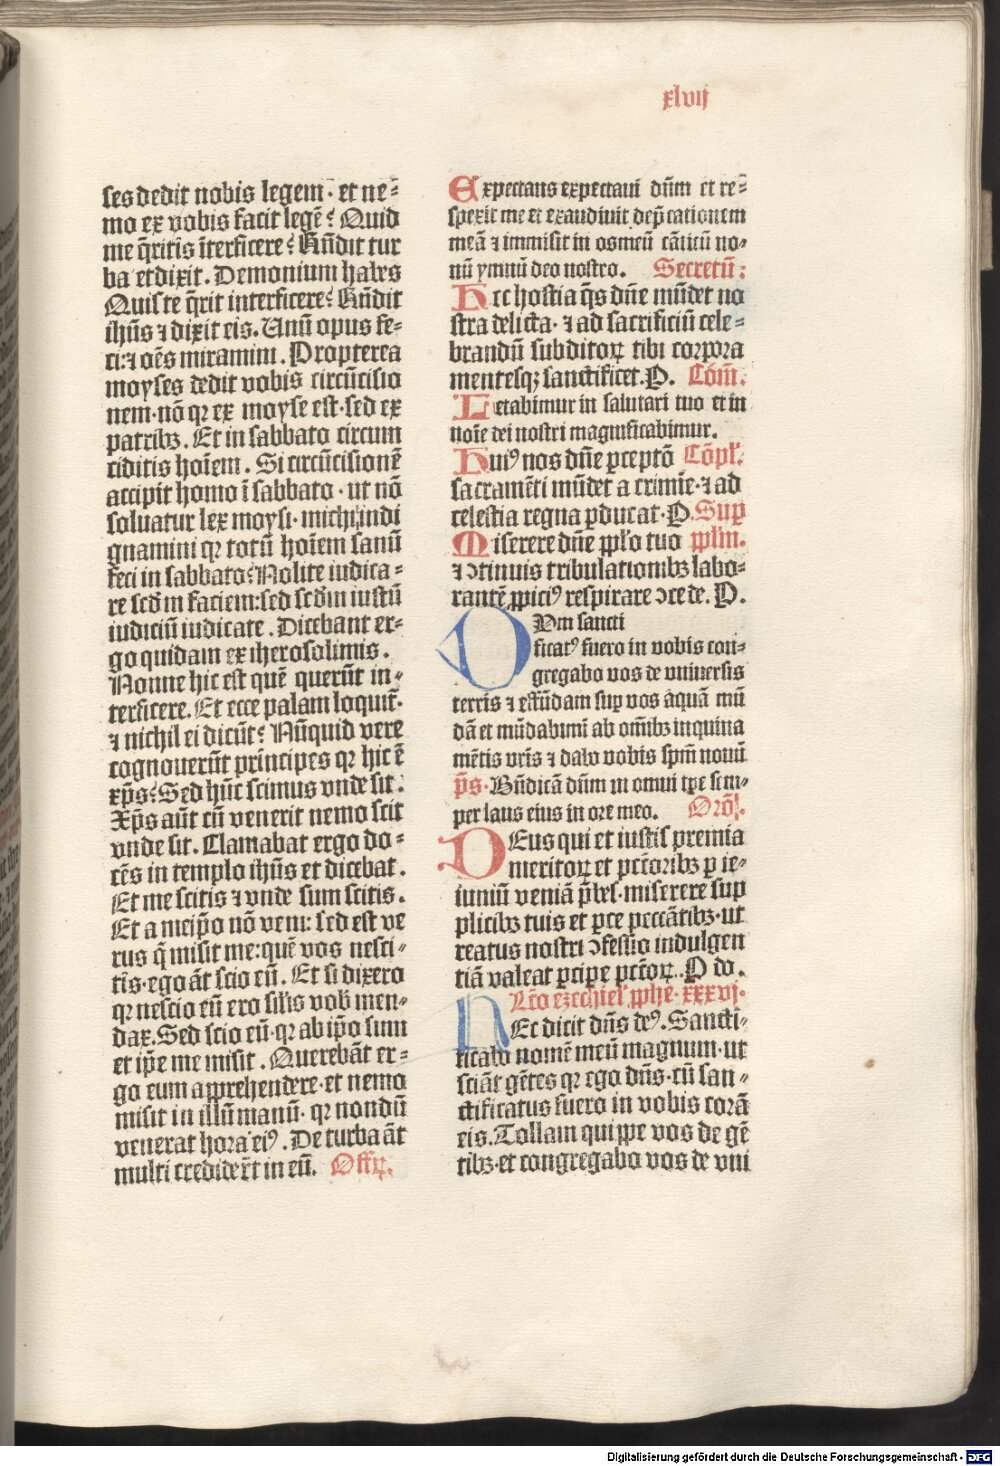 xlvij
ses dedit nobis legem· et ne⸗
mo ex vobis facit legē? Quid
me q̄ritis īterficere? Rn̄dit tur
ba et dixit. Demonium habes
Quis te q̄rit interficere? Rn̄dit
ihūs ⁊ dixit eis. Vnū opus fe⸗
ci:⁊ oēs miramini. Propterea
moyses dedit vobis circūcisio
nem·nō qꝛ ex moyse est·sed ex
patribꝫ. Et in sabbato circum
ciditis hoīem. Si circūcisionē
accipit homo ī sabbato·ut nō
soluatur lex moysi·michi indi
gnamini qꝛ totū hoīem sanū
feci in sabbato? Nolite iudica⸗
re scḋm faciem:sed scḋm iustū
iudiciū iudicate. Dicebant er⸗
go quidam ex iherosolimis.
Nonne hic est quē querūt in⸗
terficere. Et ecce palam loquit᷑·
⁊ nichil ei dicūt? Nūquid vere
cognouerūt principes qꝛ hic ē
xp̄s? Sed hūc scimus vnde sit:
Xp̄s aūt cū venerit nemo scit
vnde sit. Clamabat ergo do⸗
cēs in templo ihūs et dicebat.
Et me scitis ⁊ vnde sum scitis.
Et a meip̄o nō veni: sed est ve
rus q̄ misit me:quē vos nesci⸗
tis·ego āt scio eū. Et si dixero
qꝛ nescio eū ero silis vob̄ men⸗
dax. Sed scio eū·qꝛ ab ip̄o sum
et ip̄e me misit. Querebāt er⸗
go eum apprehendere·et nemo
misit in illū manū·qꝛ nondū
venerat hora eiꝰ. De turba āt
multi crediderūt in eū. Offꝝ.
Expectans expectaui dn̄m et re⸗
spexit me et exaudiuit dep̄cationem
meā ⁊ immisit in os meū cāticū no⸗
uū ymnū deo nostro. Secretū:
Hec hostia q̄s dn̄e mūdet no
stra delicta·⁊ ad sacrificiū cele⸗
brandū subditoꝝ tibi corpora
mentesqꝫ sanctificet.P. Cōm̄.
Letabimur in salutari tuo et in
noīe dei nostri magnificabimur.
Huiꝰ nos dn̄e ꝑceptō Cōpl̄.
sacramēti mūdet a crimīe·⁊ ad
celestia regna ꝑducat.P. Suꝑ
Miserere dn̄e pp̄lo tuo pp̄lm.
⁊ ꝯtinuis tribulationibꝫ labo⸗
rantē ꝓpiciꝰ respirare ꝯcede. P.
DVm sancti
ficatꝰ fuero in vobis con⸗
gregabo vos de vniuersis
terris ⁊ effūdam suꝑ vos aquā mū
dā et mūdabimī ab om̄ibꝫ inquina
mētis vr̄is ⁊ dabo vobis spm̄ nouū
p̄s· Bn̄dicā dn̄m in omni tp̄e sem⸗
per laus eius in ore meo. Orō̄.
DEus qui et iustis premia
meritoꝝ et pctōribꝫ ꝑ ie⸗
iuniū veniā p̄bes·miserere sup
plicibꝫ tuis et ꝑce peccātibꝫ·ut
reatus nostri ꝯfessio indulgen
tiā valeat ꝑcipe pctōꝝ. P do.
Lc̄o ezechiel̄ ꝓphe·xxxvj·
HEc dicit dn̄s deꝰ. Sancti⸗
ficabo nomē meū magnum·ut
sciāt gētes qꝛ ego dn̄s·cū san⸗
ctificatus fuero in vobis corā
eis. Tollam quippe vos de gē
tibꝫ·et congregabo vos de vni
Digitalisierung gefördert durch die Deutsche Forschungsgemeinschaft - DFG